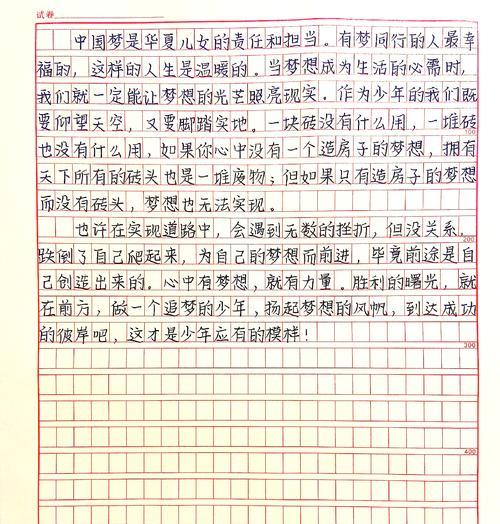 试卷
中国梦是华夏儿女的责任和担当。有梦同行的人最幸
福的，这样的人生是温暖的。当梦想成为生活的必需时，
我们就一定能让梦想的光芒照亮现实。作为少年的我们既
要仰望天空，又要脚踏实地。一块砖没有什么用，一堆砖
100
也没有什么用，如果你心中没有一个造房子的梦想，拥有
天下所有的砖头也是一堆废物；但如果只有造房子的梦想
而没有砖头，梦想也无法实现。
也许在实现道路中，会遇到无数的挫折，但没关系，
200
跌倒了自己爬起来，为自己的梦想而前进，毕竟前途是自
己创造出来的。心中有梦想，就有力量。胜利的曙光，就
在前方，做一个追梦的少年，扬起梦想的风帆，到达成功
的彼岸吧，这才是少年应有的模样！
300
400